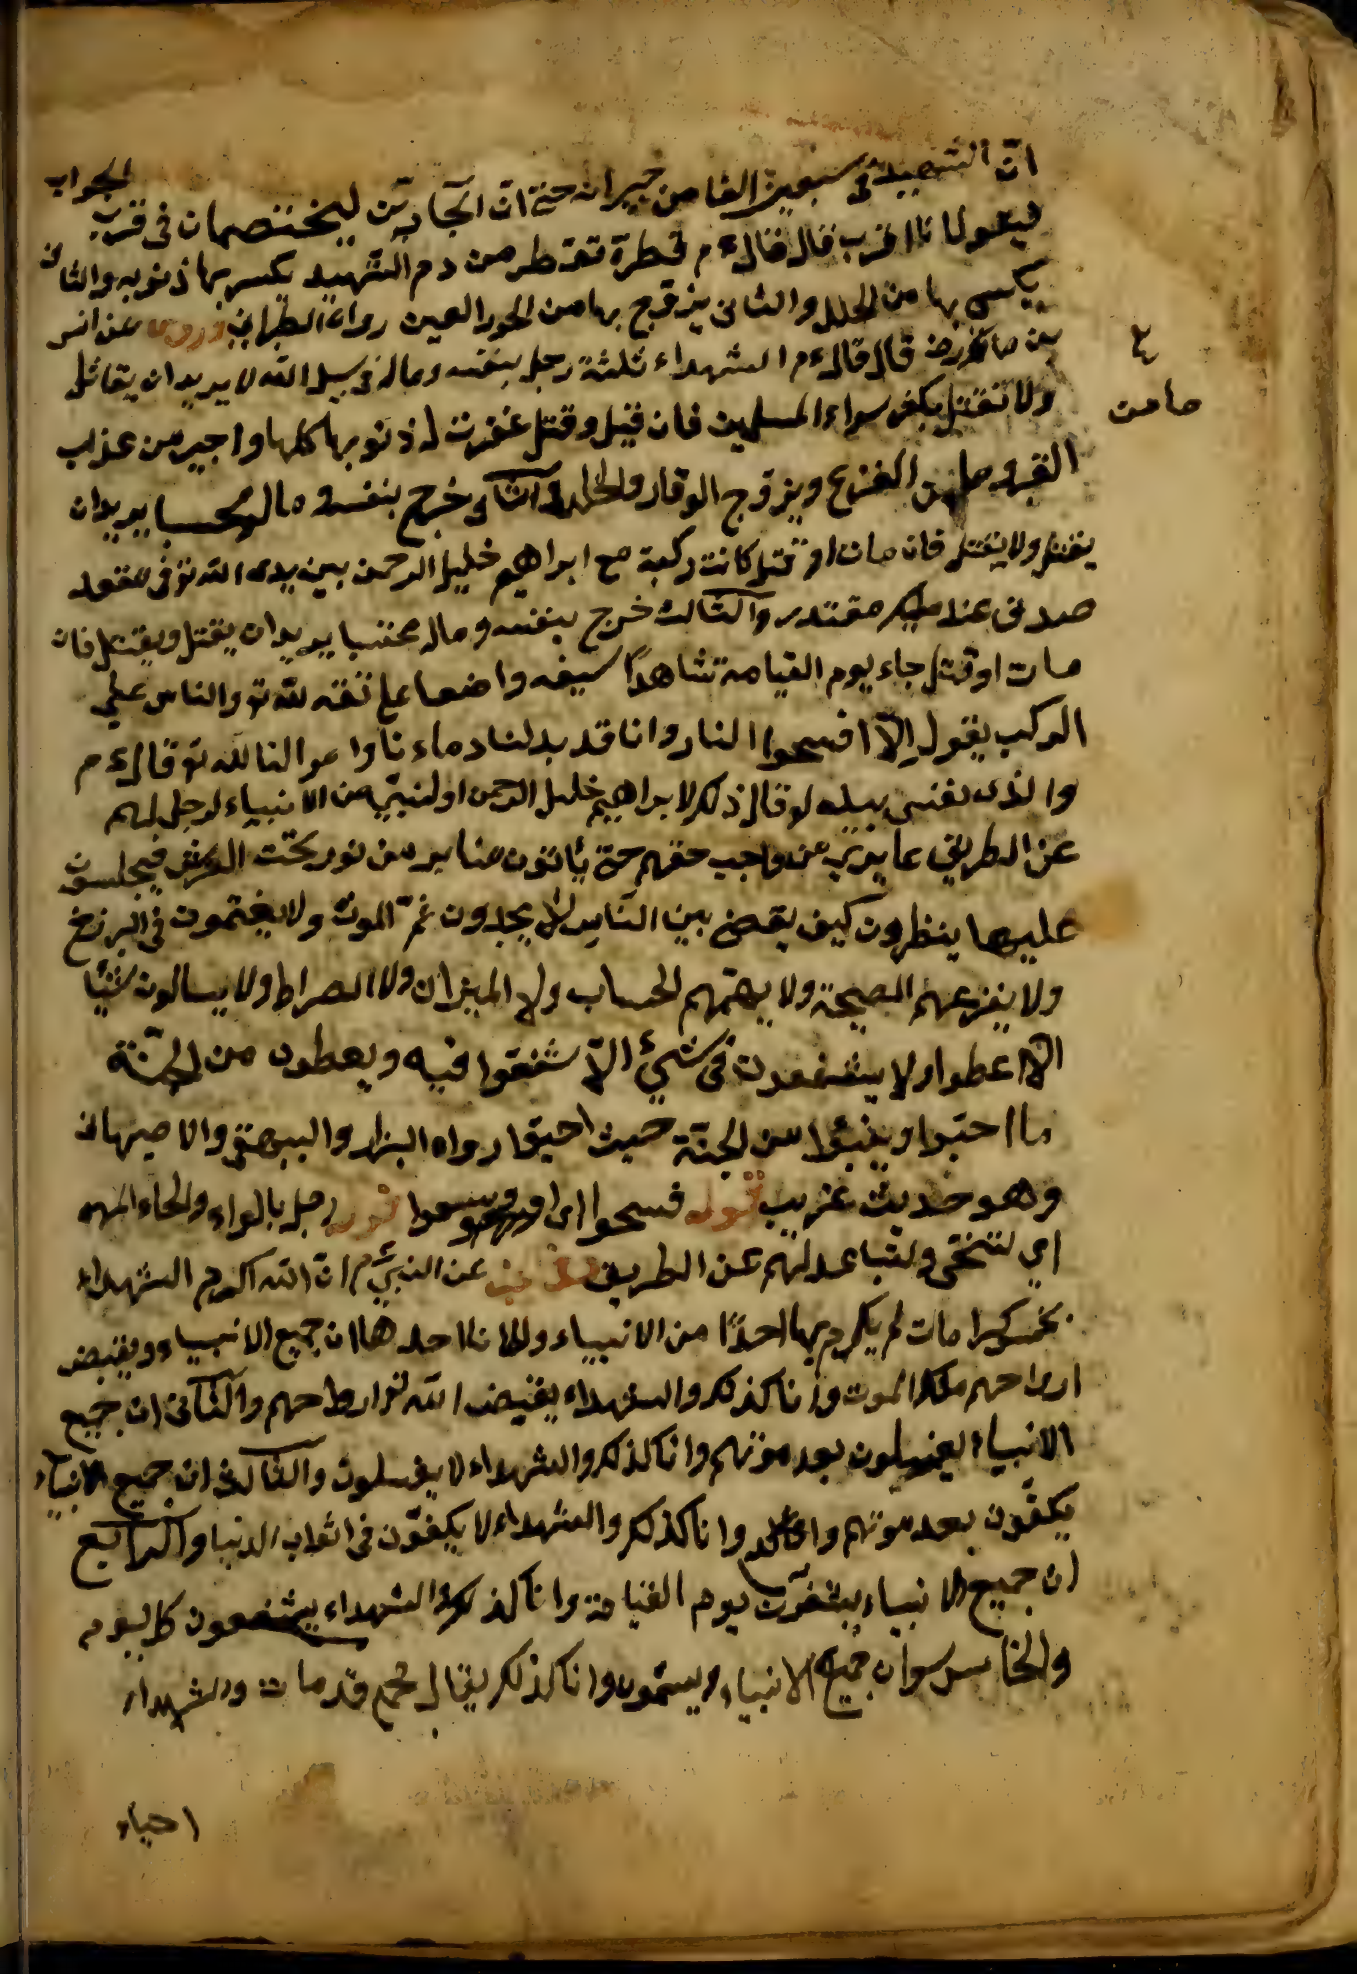 انّ الشهيد فى سبعين الفا من جيرانه حتى انّ الجارين ليختصمان فى قرب الجواب
فيقولا نا اقرب قال قال ءم قطرة تقطر من دم الشهيد يكسر بها ذنوبه والثانى
يكسى بها من الحلل والثانى يزوج بها من الحور العين رواه الطبرانى وروى عن انس
بن مالك رضى قال قال ءم الشهداء ثلثة رجل بنفسه وماله فى سبيل الله لا يريد ان يقاتل
ولا يقتل يكثر سواء المسلمين فان قتل وقتل غفرت له ذنوبها كلها واجير من عذاب
القبر من الفزع ويزوج الوقار والثانى خرج بنفسه وماله محتسبا يريد ان
يقتل ولا يقتل فان مات او قتل كانت ركبة مع ابراهيم خليل الرحمن بين يدى الله تو فى مقعد
صدق عند مليك مقتدر والثالث خرج بنفسه وماله محتسبا يريد ان يقتل ويقتل فان
مات او قتل جاء يوم القيامة شاهدًا سيفه واضعا على عنقه لله تو والناس على
الركب يقول الا افسحوا النار وانا قد بدلنا دماء نا واموالنا لله تو قال ءم
والذى نفسى بيده لو قال ذلك لابراهيم خليل الرحمن او لنبى من الانبياء لرحل لهم
عن الطريق عا يرى من واجب حقهم حتى يأتون منابر من نور تحت العرش فيجلسون
عليها ينظرون كيف يقضى بين الناس لا يجدون غمّ الموت ولا يغتمون فى البرزخ
ولا يفزعهم الصيحة ولا يهمّهم الحساب ولا الميزان ولا الصراط ولا يسالون شيئا
الا اعطوا ولا يشفعون فى شئ الا شفعوا فيه ويعطون من الجنّة
ما احبوا ويتبؤا من الجنّة حيث احبوا رواه البزار والبيهقى والاصبهانى
وهو حديث غريب قوله فسحوا اى وسعوا قوله رحل بالراء والحاء المهمله
اى لتنحّى ولتباعد لهم عن الطريق عن النبىّ ءم انّ الله اكرم الشهداء
بخمس كرامات لم يكرم بها احدًا من الانبياء ولا انا احدها ان جميع الانبياء ويقبض
ارواحهم ملك الموت وانا كذلك والشهداء يقبض الله تو ارواحهم والثانى ان جميع
الانبياء يغسلون بعد موتهم وانا كذلك والشهداء لا يغسلون والثالث ان جميع الانبياء
يكفّون بعد موتهم وانا كذلك والشهداء لا يكفّون فى اثواب الدنيا والرابع
ان جميع الانبياء يشفعون يوم القيامة وانا كذلك والشهداء يشفعون كل يوم
والخامس ان جميع الانبياء يسمون وانا كذلك يقال محمد قد مات والشهداء
احياء
٤
ما من